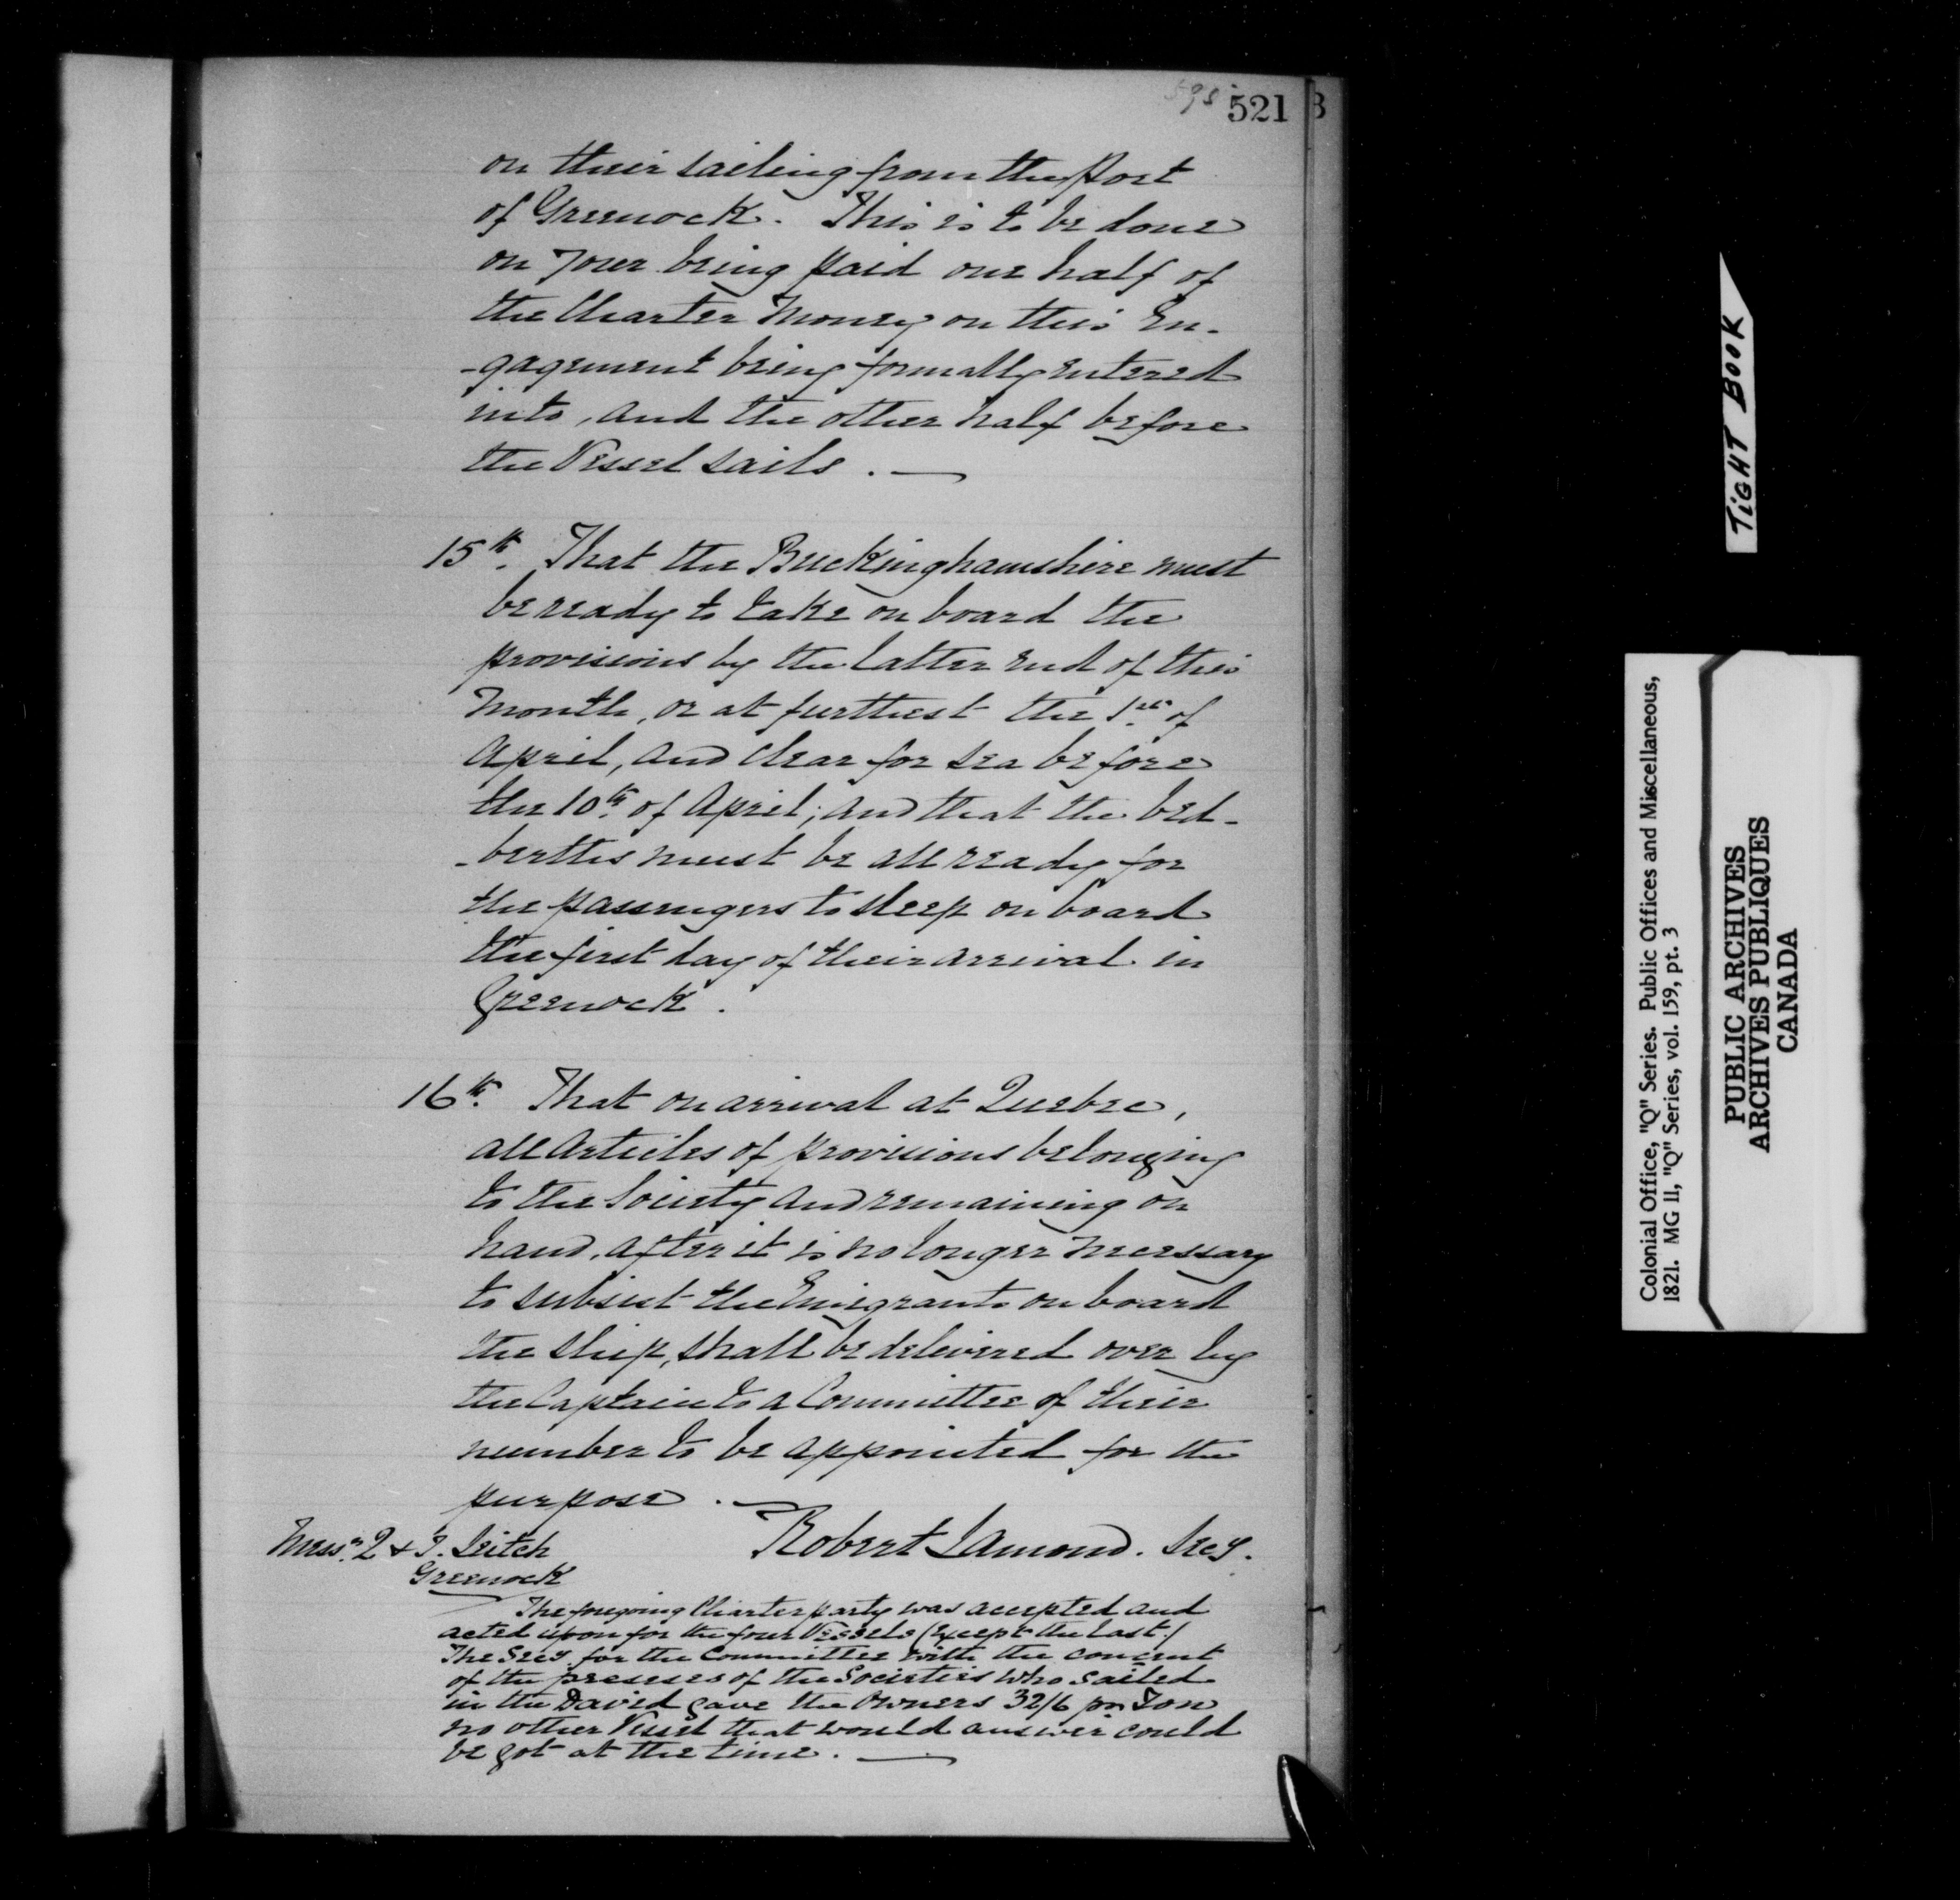 521
on their sailing from the Port
of Greenock. This is to be done
on your being paid one half of
the Charter Money on this En-
-gagement being formally entered
into, and the other half before
the Vessel sails.
15th. That the Buckinghamshire must
be ready to take on board the
provisions by the latter end of this
Month, or at furthest the 1st of
April, and clear for sea before
the 10th of April; and that the bed-
-berths must be all ready for
the passengers to sleep on board
the first day of their arrival in
Greenock.
16th. That on arrival at Quebec,
all Articles of provisions belonging
to the Society and remaining on
hand, after it is no longer necessary
to subsist the Emigrants on board
the ship, shall be delivered over by
the Captain to a Committee of their
number to be appointed for the
purpose.
Robert Lamond. Secy.
Messrs. Q & J. Leitch
Greenock
The foregoing Charter party was accepted and
acted upon for the four Vessels (Except the last.)
The Secy. for the Committee with the consent
of the preseses of the Societies who sailed
in the David gave the Owners 32/6 pr Ton
no other Vessel that would answer could
be got at the time.
TIGHT BOOK
Colonial Office, "Q" Series. Public Offices and Miscellaneous,
1821. MG 11, "Q" Series, vol. 159, pt. 3
PUBLIC ARCHIVES
ARCHIVES PUBLIQUES
CANADA